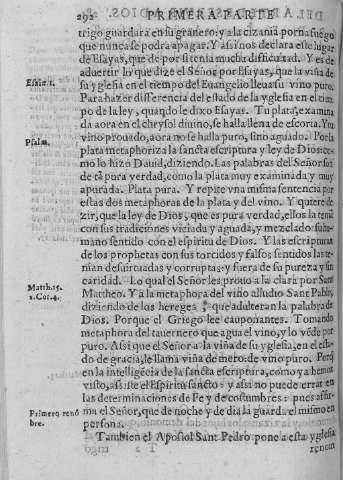 292 PRIMERA PARTE
trigo guardara en su granero: y a la cizania porna fuego
que nunca se podra apagar. Y assi nos declara este lugar
de Esayas, que de por si tenia mucha dificultad. Y es de
aduertir lo que dize el Señor por Esayas, que la viña de
Esaie. 1.
su yglesia en el tiempo del Euangelio lleua su vino puro.
Para hazer differencia del estado de la yglesia en el tiempo
de la ley, quando le dixo Esayas. Tu plata, examinada
aora en el chrysol diuino, se halla llena de escoria. Y tu
vino prouado, aora no se halla puro, sino aguado. Por la
Psalm.
plata metaphoriza la sancta escriptura y ley de Dios: como
lo hizo Dauid, diziendo. Las palabras del Señor son
de tã pura verdad, como la plata muy examinada y muy
apurada. Plata pura. Y repite vna misma sentencia por
estas dos metaphoras de la plata y del vino. Y quiere dezir,
que la ley de Dios, que es pura verdad, ellos la teniã
con sus tradiciones viciada y aguada, y mezclado su humano
sentido con el espiritu de Dios. Y las escripturas
de los prophetas con sus torcidos y falsos sentidos las tenian
desuirtuadas y corruptas: y fuera de su pureza y sinceridad.
Lo qual el Señor les prouo a la clara por Sant
Matth. 15.
Mattheo. Y a la metaphora del viño alludio Sant Pablo,
2. Cor. 4.
diziendo de los hereges, que adulteran la palabra de
Dios. Porque el Griego lee cauponantes. Tomando
metaphora del tauernero que agua el vino, y lo vẽde por
puro. Assi que el Señor a la viña de su yglesia, en el estado
de gracia, le llama viña de mero: de vino puro. Porq̃
en la inteligẽcia de la sancta escriptura, como ya hemos
visto, assiste el Espiritu sancto: y assi no puede errar en
las determinaciones de Fe y de costumbres: pues affirma
el Señor, que de noche y de dia la guarda el mismo en
Primero renõbre.
persona.
Tambien el Apostol Sant Pedro pone a esta yglesia
renom